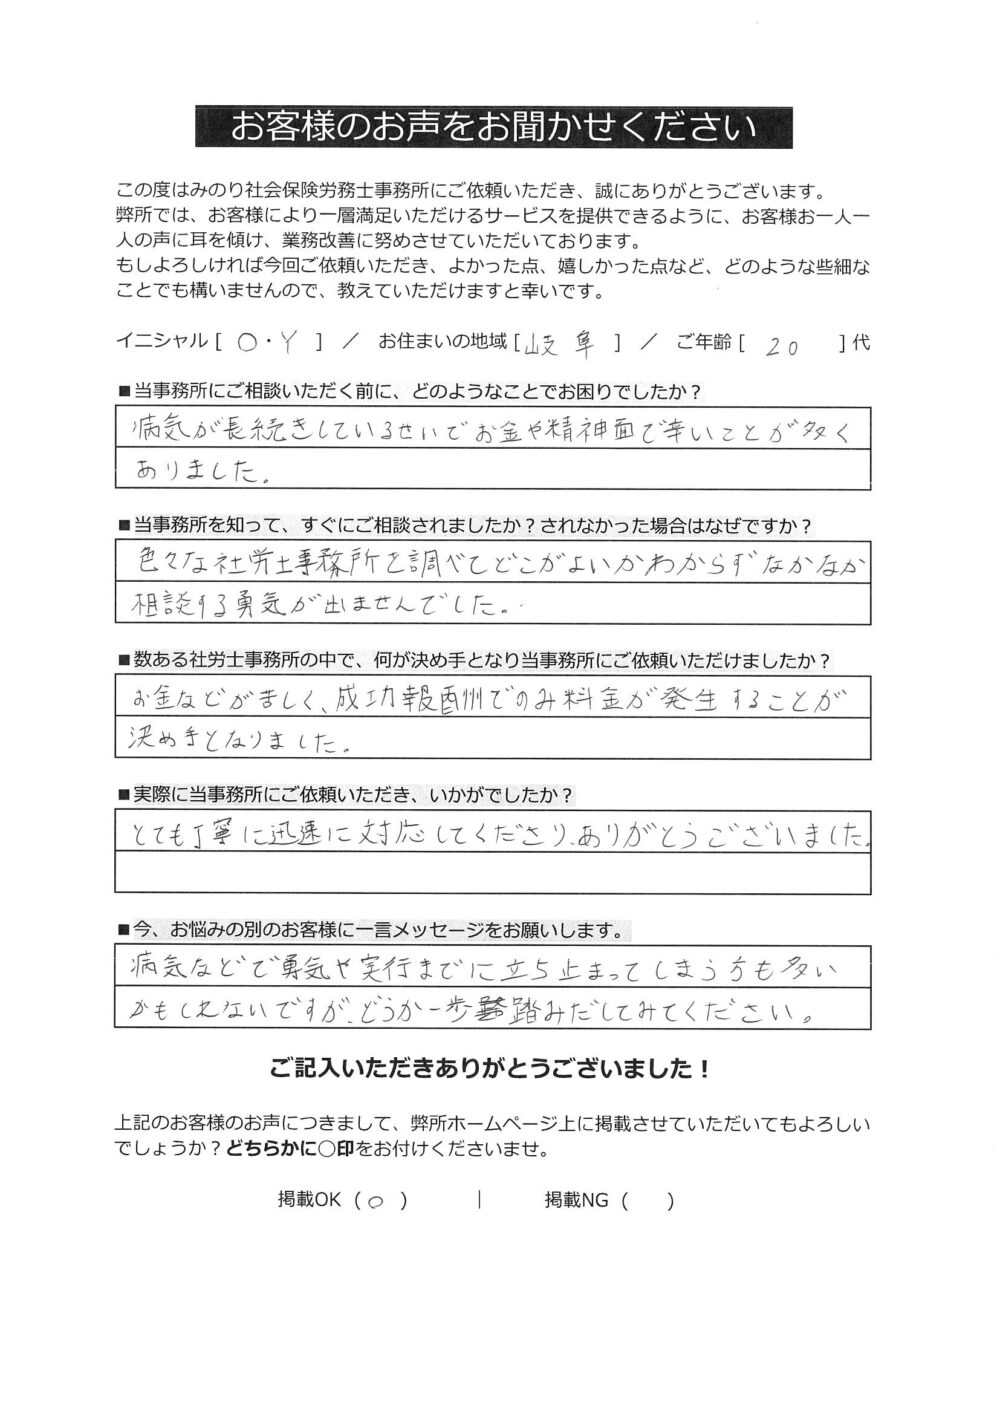 お客様のお声をお聞かせください
この度はみのり社会保険労務士事務所にご依頼いただき、誠にありがとうございます。
弊所では、お客様により一層満足いただけるサービスを提供できるように、お客様お一人一
人の声に耳を傾け、業務改善に努めさせていただいております。
もしよろしければ今回ご依頼いただき、よかった点、嬉しかった点など、どのような些細な
ことでも構いませんので、教えていただけますと幸いです。
イニシャル [ O・Y ] ／ お住まいの地域 [岐阜 ] ／ ご年齢 [ 20 ] 代
■当事務所にご相談いただく前に、どのようなことでお困りでしたか？
病気が長続きしているせいでお金や精神面で辛いことが多く
ありました。
■当事務所を知って、すぐにご相談されましたか？されなかった場合はなぜですか？
色々な社労士事務所を調べてどこがよいかわからずなかなか
相談する勇気が出ませんでした。
■数ある社労士事務所の中で、何が決め手となり当事務所にご依頼いただけましたか？
お金などが苦しく、成功報酬でのみ料金が発生することが
決め手となりました。
■実際に当事務所にご依頼いただき、いかがでしたか？
とても丁寧に迅速に対応してくださり、ありがとうございました。
■今、お悩みの別のお客様に一言メッセージをお願いします。
病気などで勇気や実行までに立ち止まってしまう方も多い
かもしれないですが、どうか一歩踏みだしてみてください。
ご記入いただきありがとうございました！
上記のお客様のお声につきまして、弊所ホームページ上に掲載させていただいてもよろしい
でしょうか？どちらかに〇印をお付けくださいませ。
掲載OK （○ ） ｜ 掲載NG （ ）